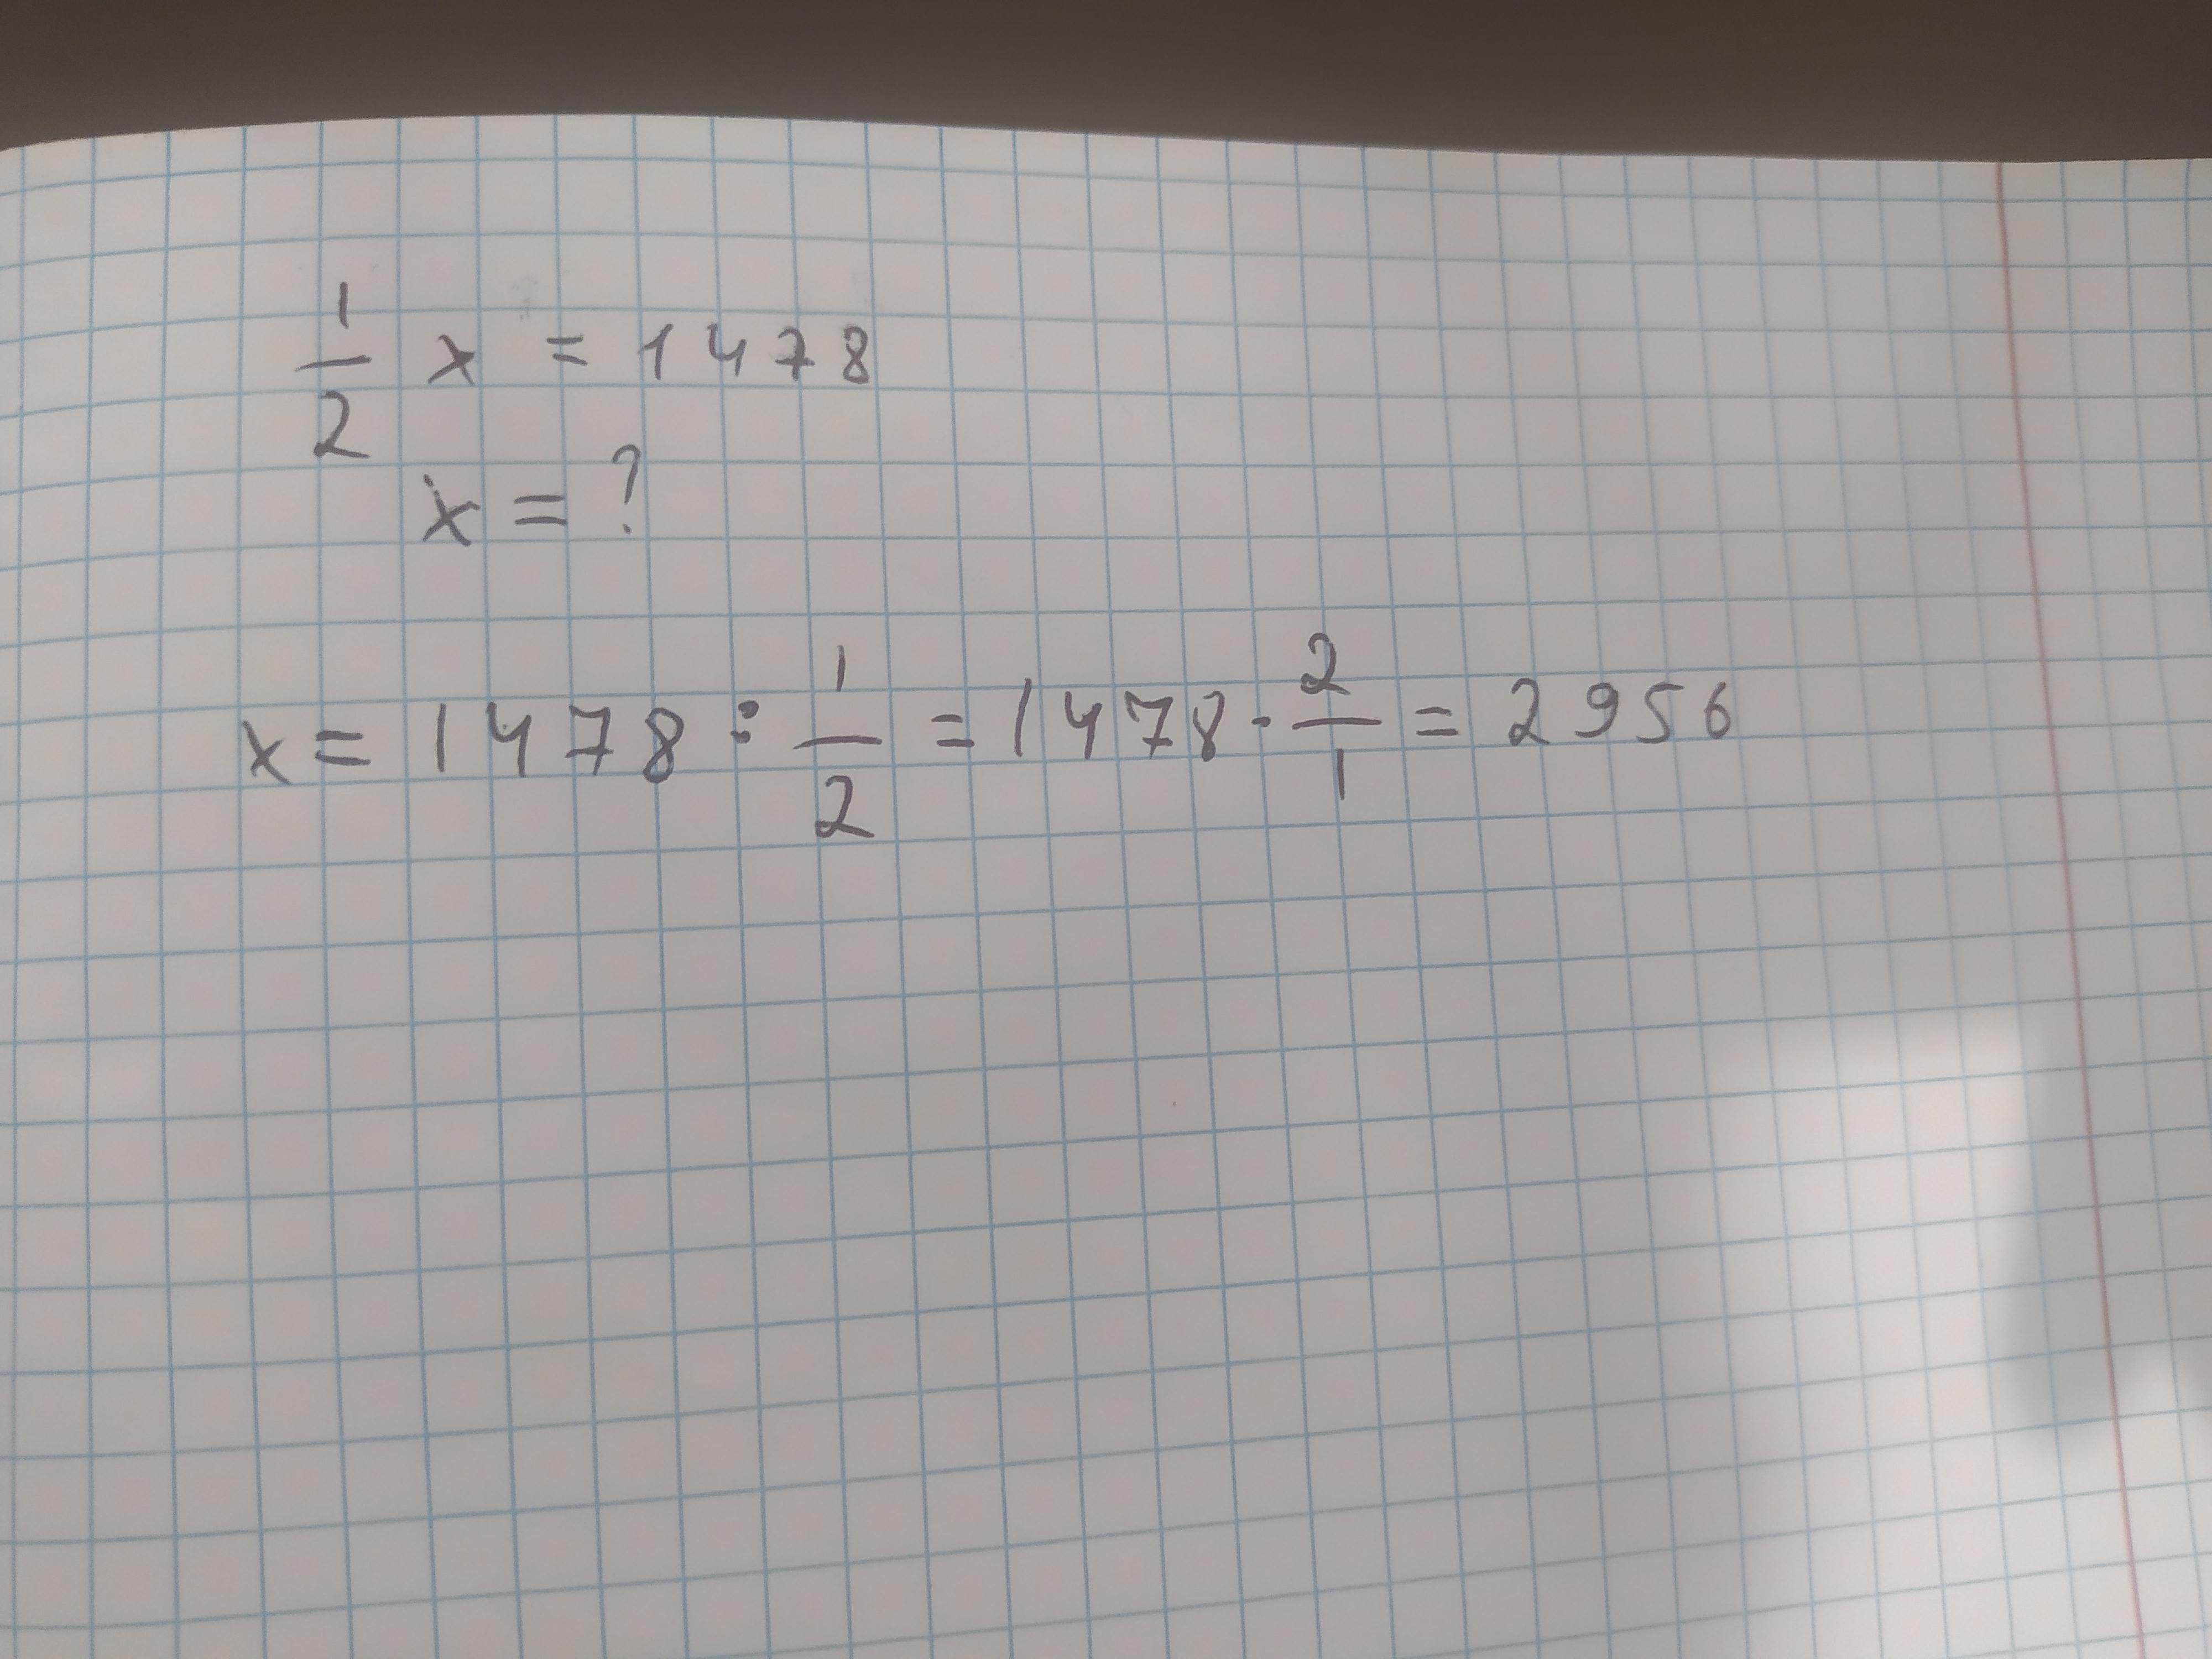 1/2 x = 1478
x = ?
x = 1478 : 1/2 = 1478 · 2/1 = 2956